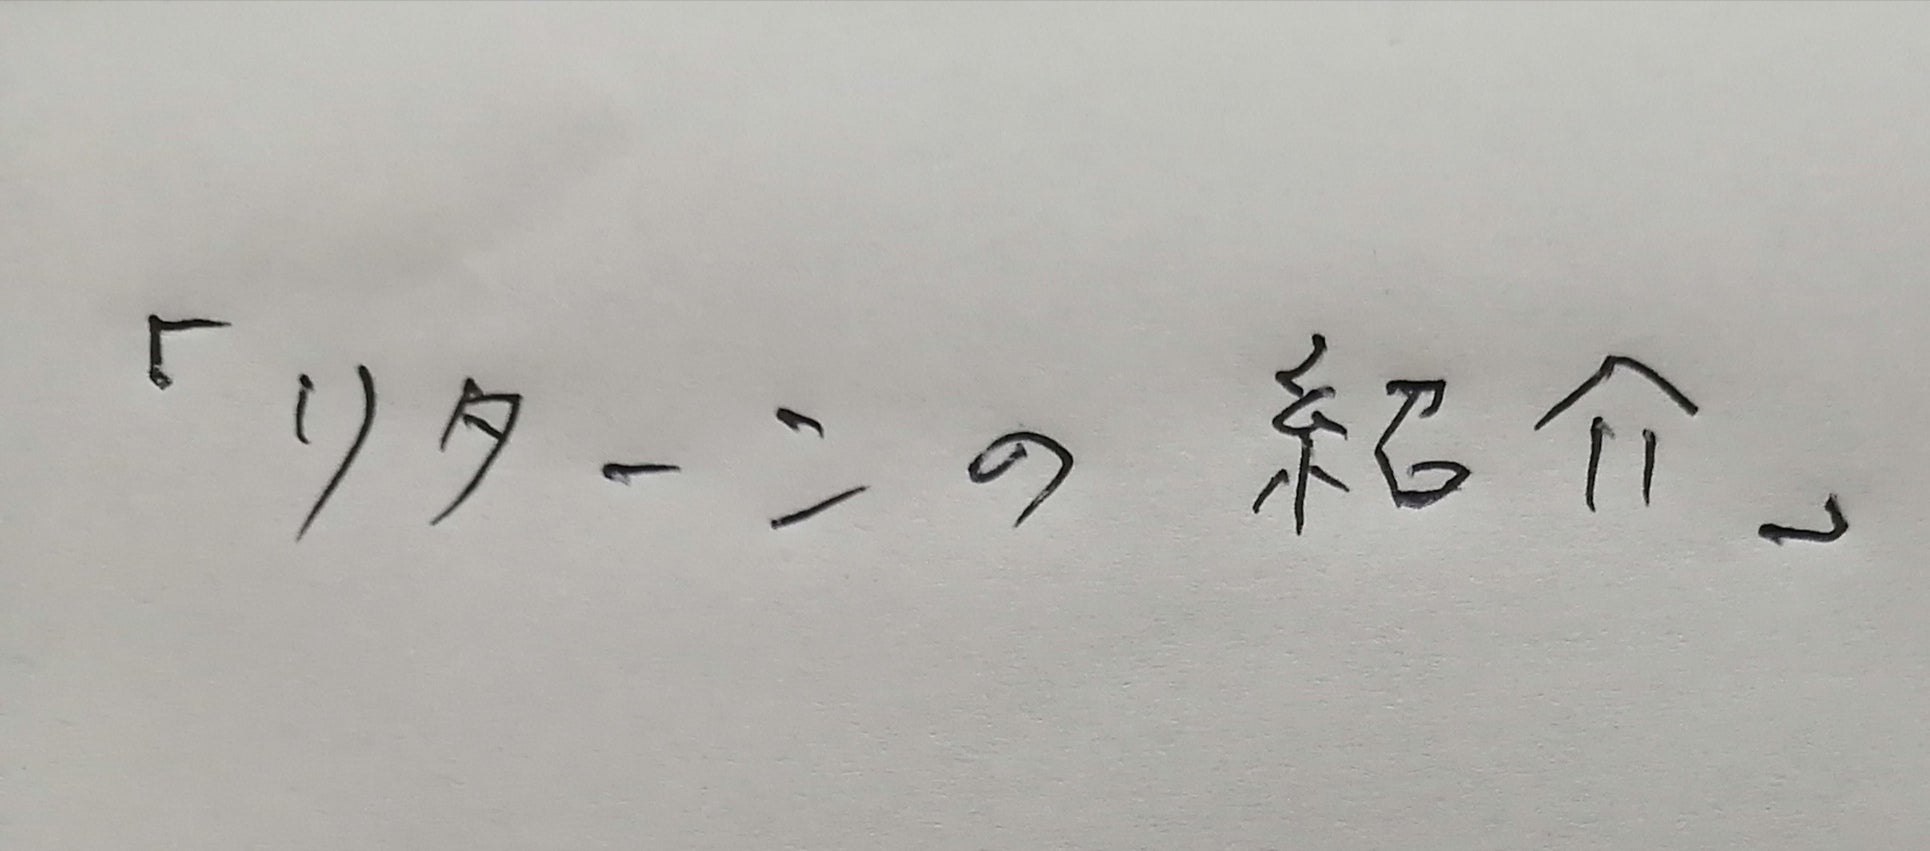 「リターンの紹介」